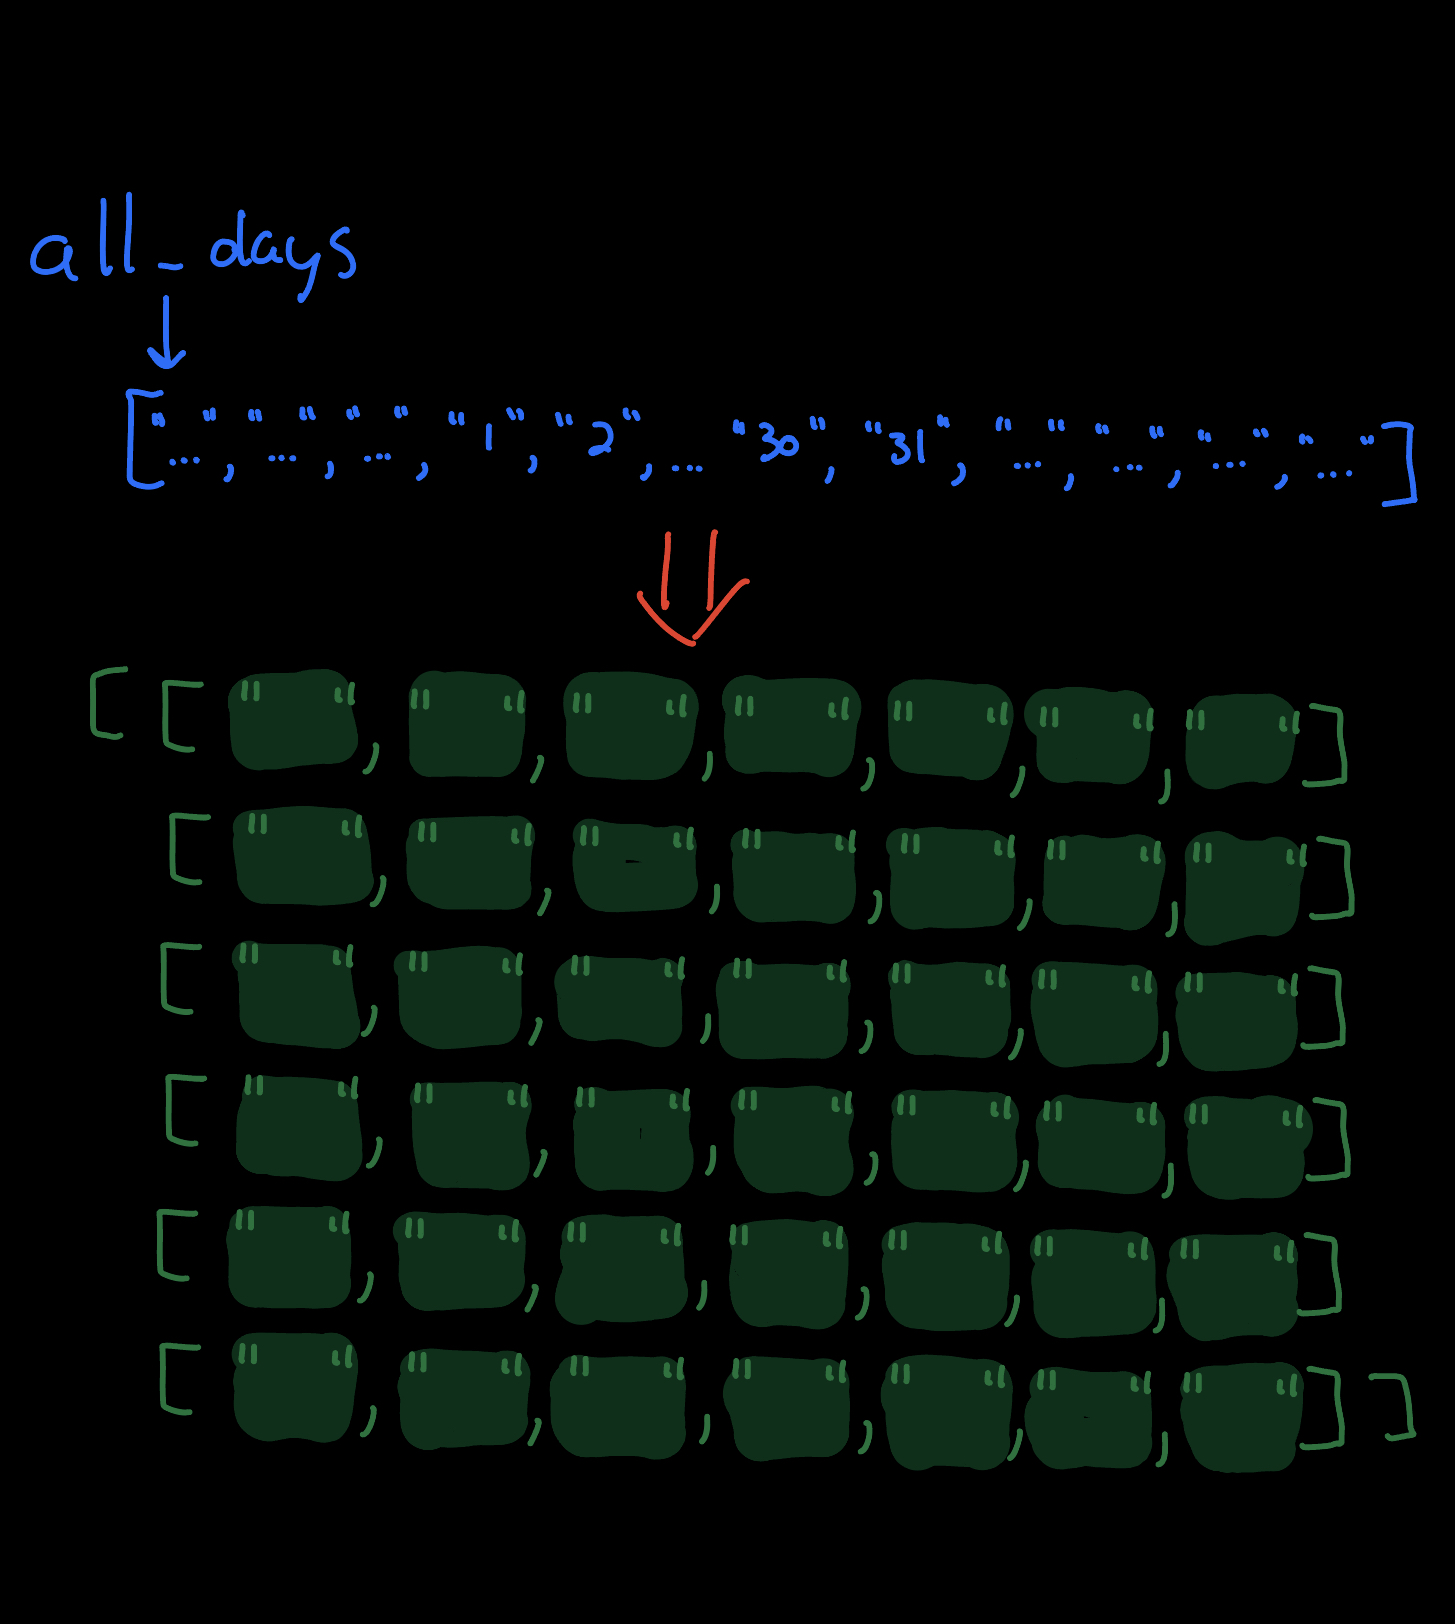 all_days
["...", "...", "...", "1", "2", ... "30", "31", "...", "...", "...", "..."]
[["", "", "", "", "", "", ""]
["", "", "", "", "", "", ""]
["", "", "", "", "", "", ""]
["", "", "", "", "", "", ""]
["", "", "", "", "", "", ""]
["", "", "", "", "", "", ""]]